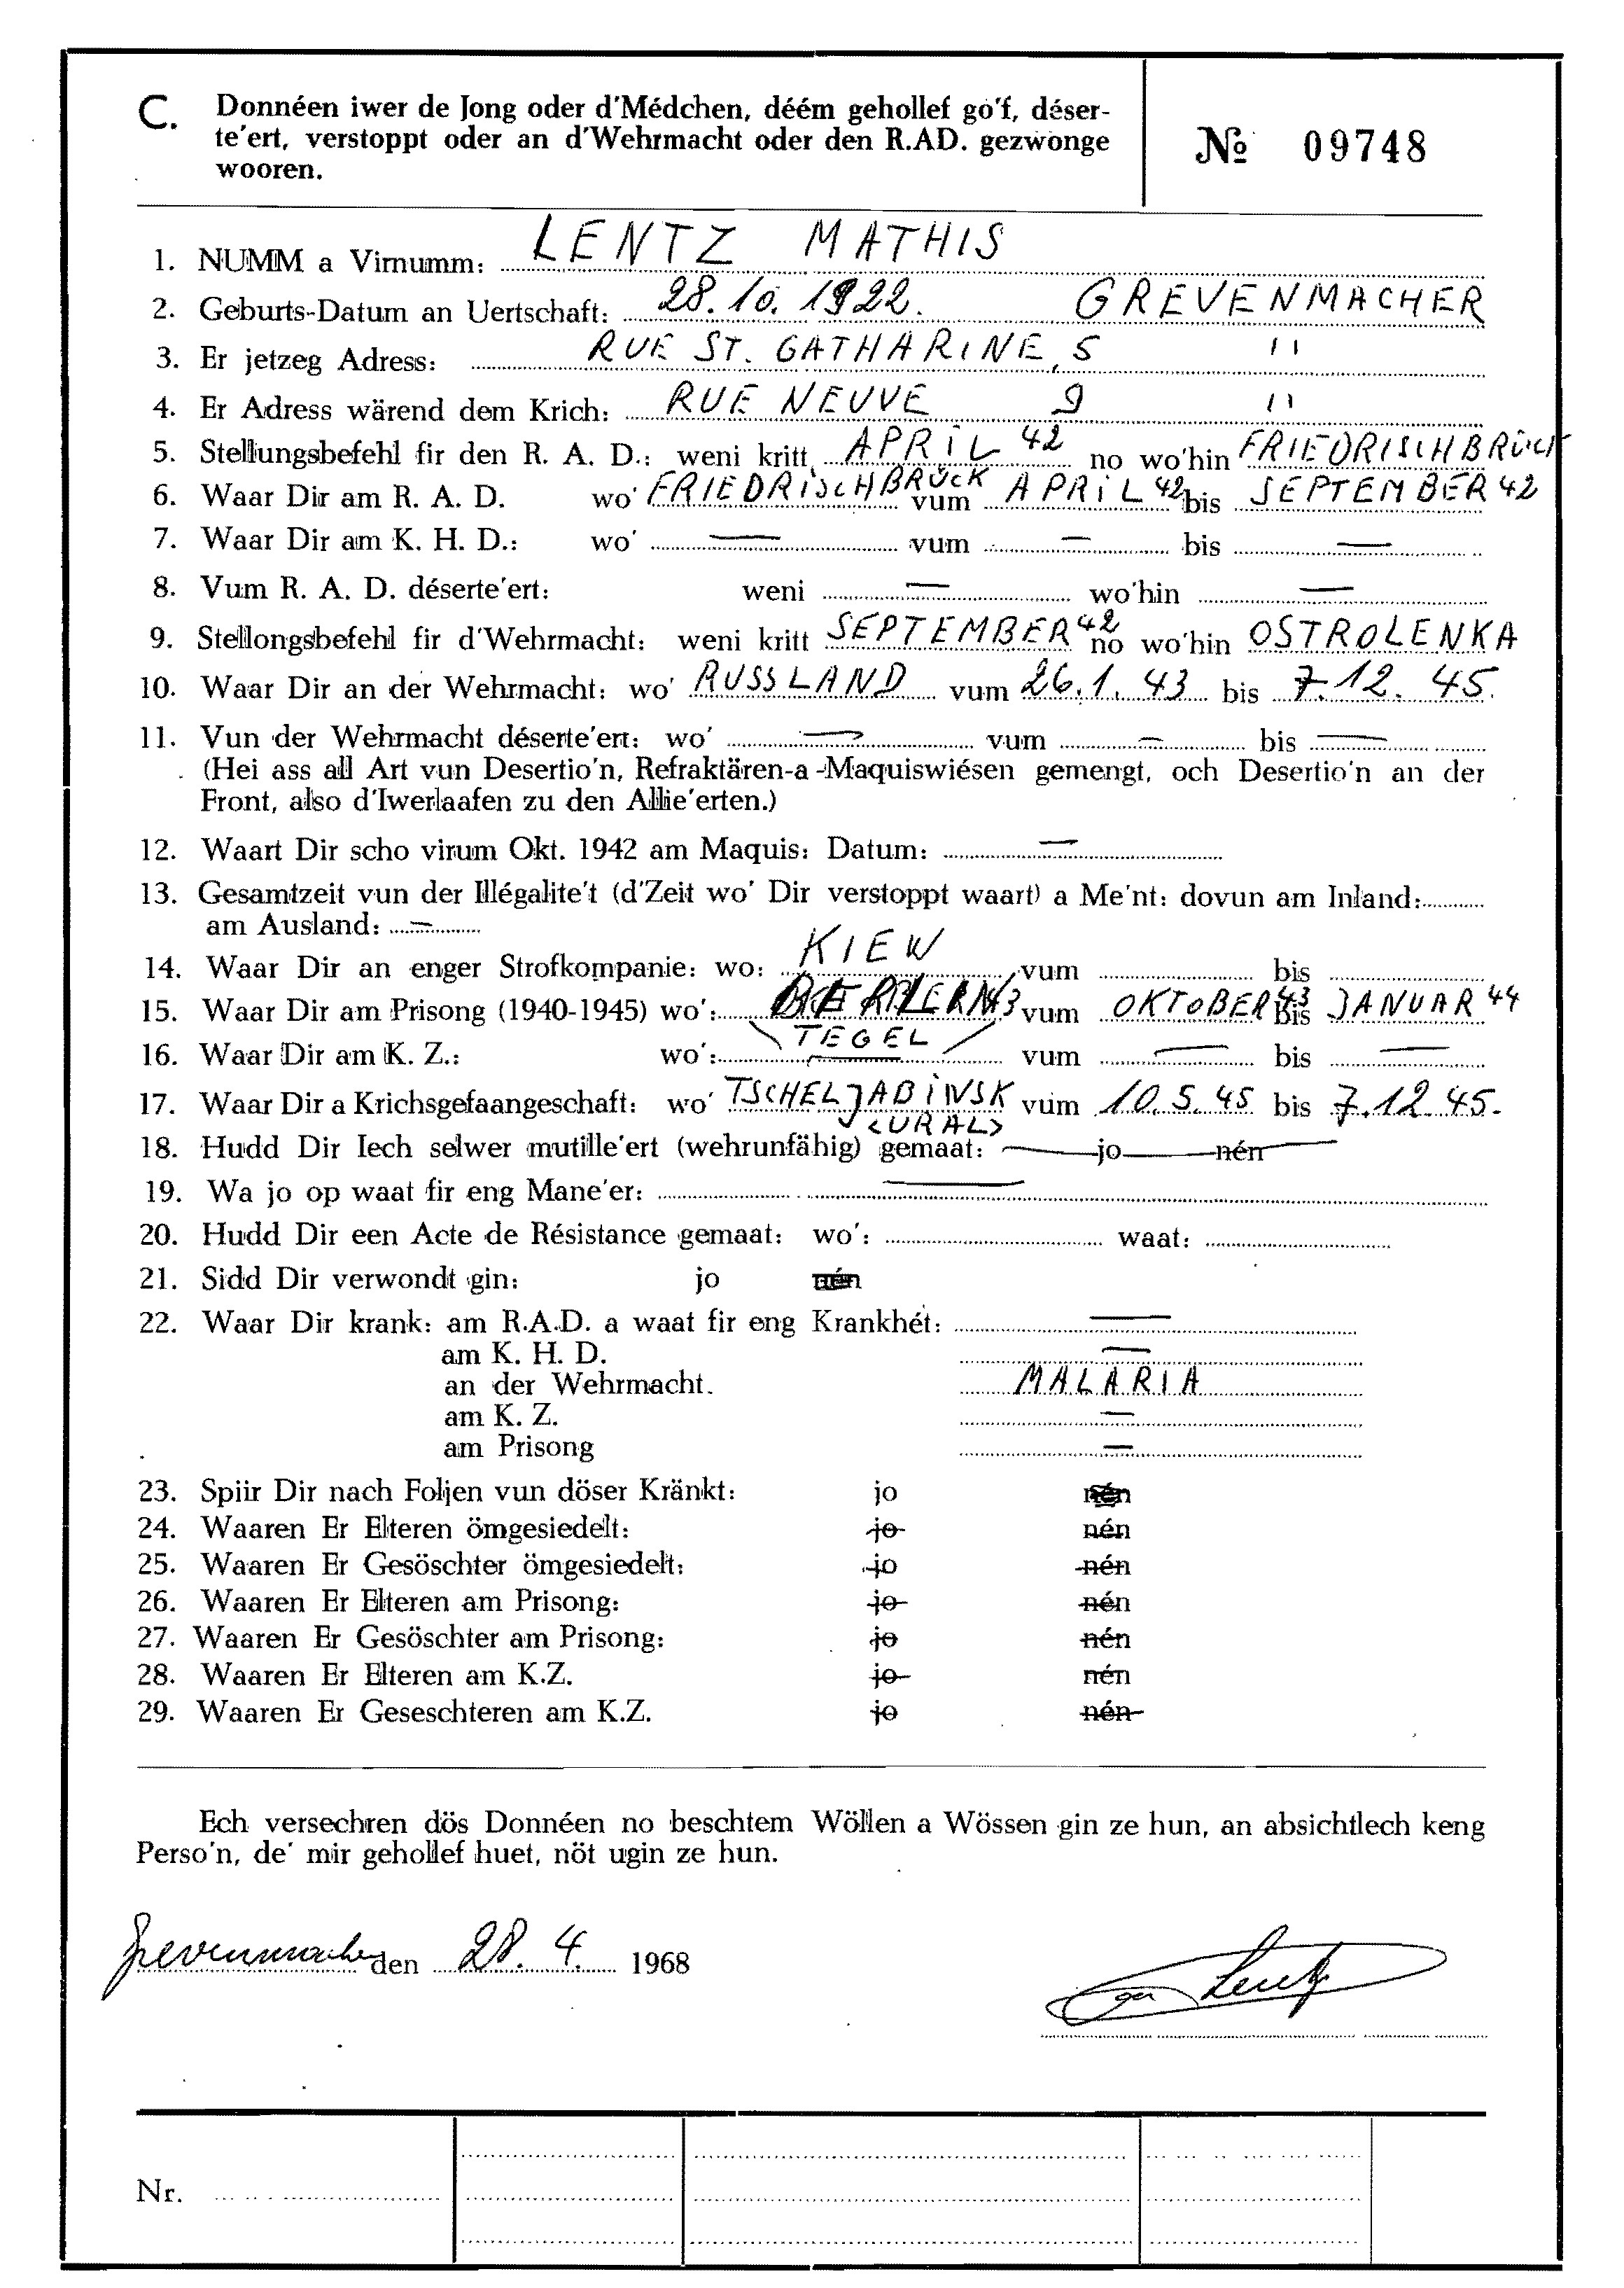 C. Donnéen iwer de Jong oder d'Médchen, déém gehollef go'f, déser-
te'ert, verstoppt oder an d'Wehrmacht oder den R.AD. gezwonge
wooren.
№ 09748
1. NUMM a Virnumm: LENTZ MATHIS
2. Geburts-Datum an Uertschaft: 28.10.1922. GREVENMACHER
3. Er jetzeg Adress: RUE ST. GATHARINE, 5 "
4. Er Adress wärend dem Krich: RUE NEUVE 9 "
5. Stellungsbefehl fir den R. A. D.: weni kritt APRIL 42 no wo'hin FRIEDRISCHBRÜCK
6. Waar Dir am R. A. D. wo' FRIEDRISCHBRÜCK vum APRIL 42 bis SEPTEMBER 42
7. Waar Dir am K. H. D.: wo' — vum — bis —
8. Vum R. A. D. déserte'ert: weni — wo'hin —
9. Stellongsbefehl fir d'Wehrmacht: weni kritt SEPTEMBER 42 no wo'hin OSTROLENKA
10. Waar Dir an der Wehrmacht: wo' RUSSLAND vum 26.1.43 bis 7.12.45.
11. Vun der Wehrmacht déserte'ert: wo' — vum — bis —
(Hei ass all Art vun Desertio'n, Refraktären-a-Maquiswiésen gemengt, och Desertio'n an der
Front, also d'Iwerlaafen zu den Allie'erten.)
12. Waart Dir scho virum Okt. 1942 am Maquis: Datum: —
13. Gesamtzeit vun der Illégalite't (d'Zeit wo' Dir verstoppt waart) a Me'nt: dovun am Inland:
am Ausland: —
14. Waar Dir an enger Strofkompanie: wo: KIEW vum bis
15. Waar Dir am Prisong (1940-1945) wo': vum OKTOBER 43 bis JANUAR 44
TEGEL
16. Waar Dir am K. Z.: wo': — vum — bis —
17. Waar Dir a Krichsgefaangeschaft: wo' TSCHELJABINSK vum 10.5.45 bis 7.12.45.
<URAL>
18. Hudd Dir Iech selwer mutille'ert (wehrunfähig) gemaat: jo nén
19. Wa jo op waat fir eng Mane'er: —
20. Hudd Dir een Acte de Résistance gemaat: wo': waat:
21. Sidd Dir verwondt gin: jo nén
22. Waar Dir krank: am R.A.D. a waat fir eng Krankhét: —
am K. H. D. —
an der Wehrmacht. MALARIA
am K. Z. —
am Prisong —
23. Spiir Dir nach Foljen vun döser Kränkt: jo nén
24. Waaren Er Elteren ömgesiedelt: jo nén
25. Waaren Er Gesöschter ömgesiedelt: jo nén
26. Waaren Er Elteren am Prisong: jo nén
27. Waaren Er Gesöschter am Prisong: jo nén
28. Waaren Er Elteren am K.Z. jo nén
29. Waaren Er Geseschteren am K.Z. jo nén
Ech versechren dös Donnéen no beschtem Wöllen a Wössen gin ze hun, an absichtlech keng
Perso'n, de' mir gehollef huet, nöt ugin ze hun.
Grevenmacher den 28.4. 1968
Lentz
Nr.